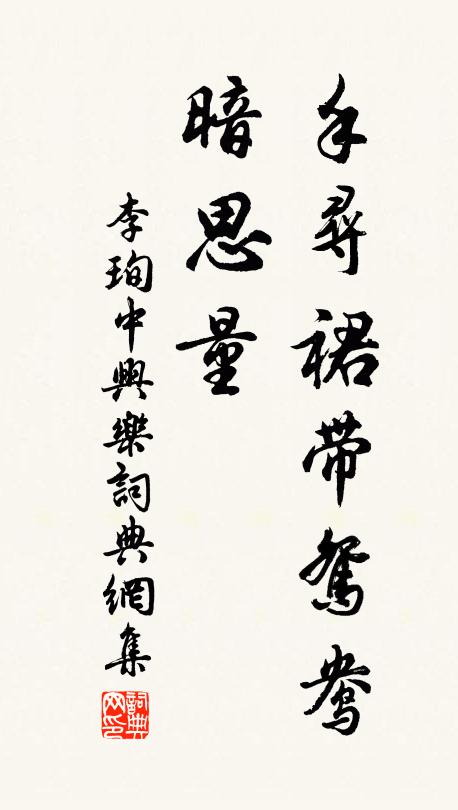 手尋裙帶鴛鴦
暗思量
李珣中興樂詞典網集
詞典
网印